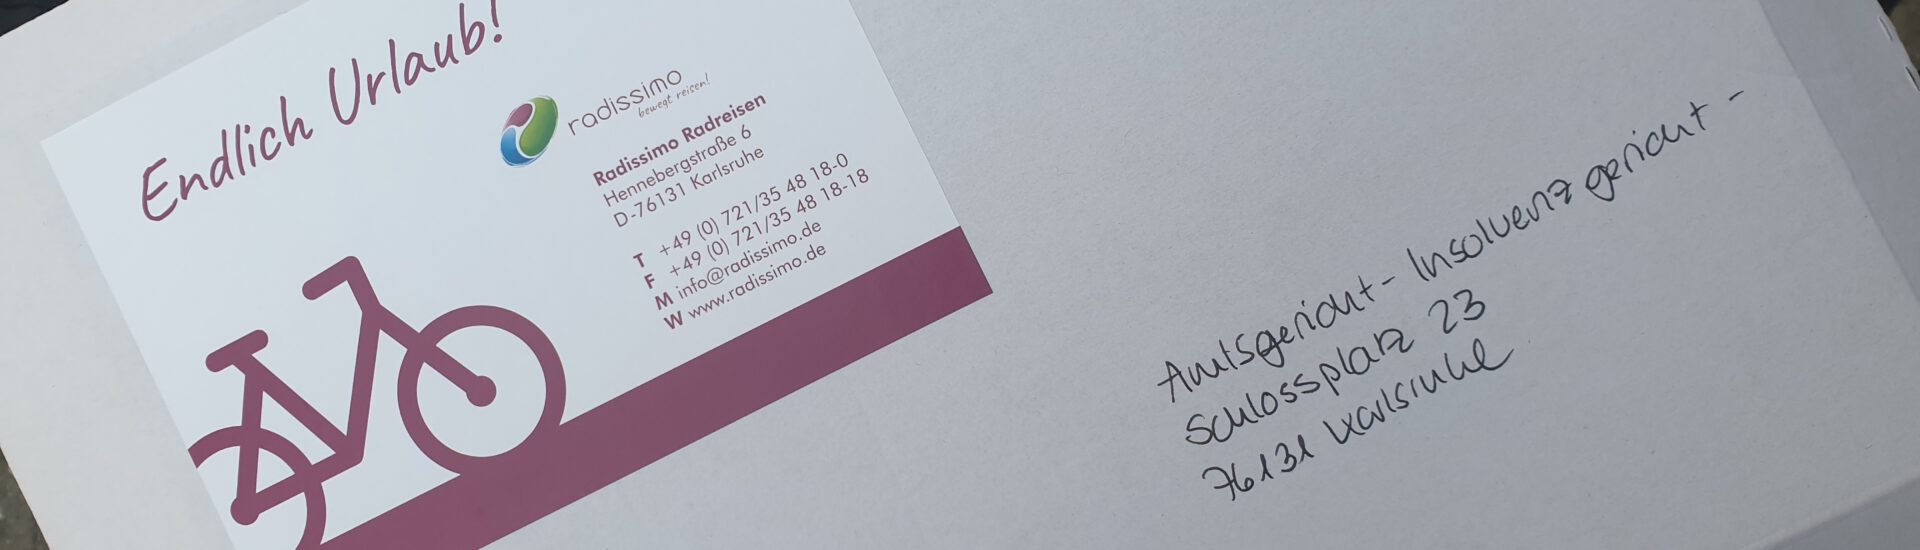 Endlich Urlaub!
radissimo
bewegt reisen!
Radissimo Radreisen
Hennebergstraße 6
D-76131 Karlsruhe
T +49 (0) 721/35 48 18-0
F +49 (0) 721/35 48 18-18
M info@radissimo.de
W www.radissimo.de
Amtsgericht - Insolvenzgericht -
Schlossplatz 23
76131 Karlsruhe